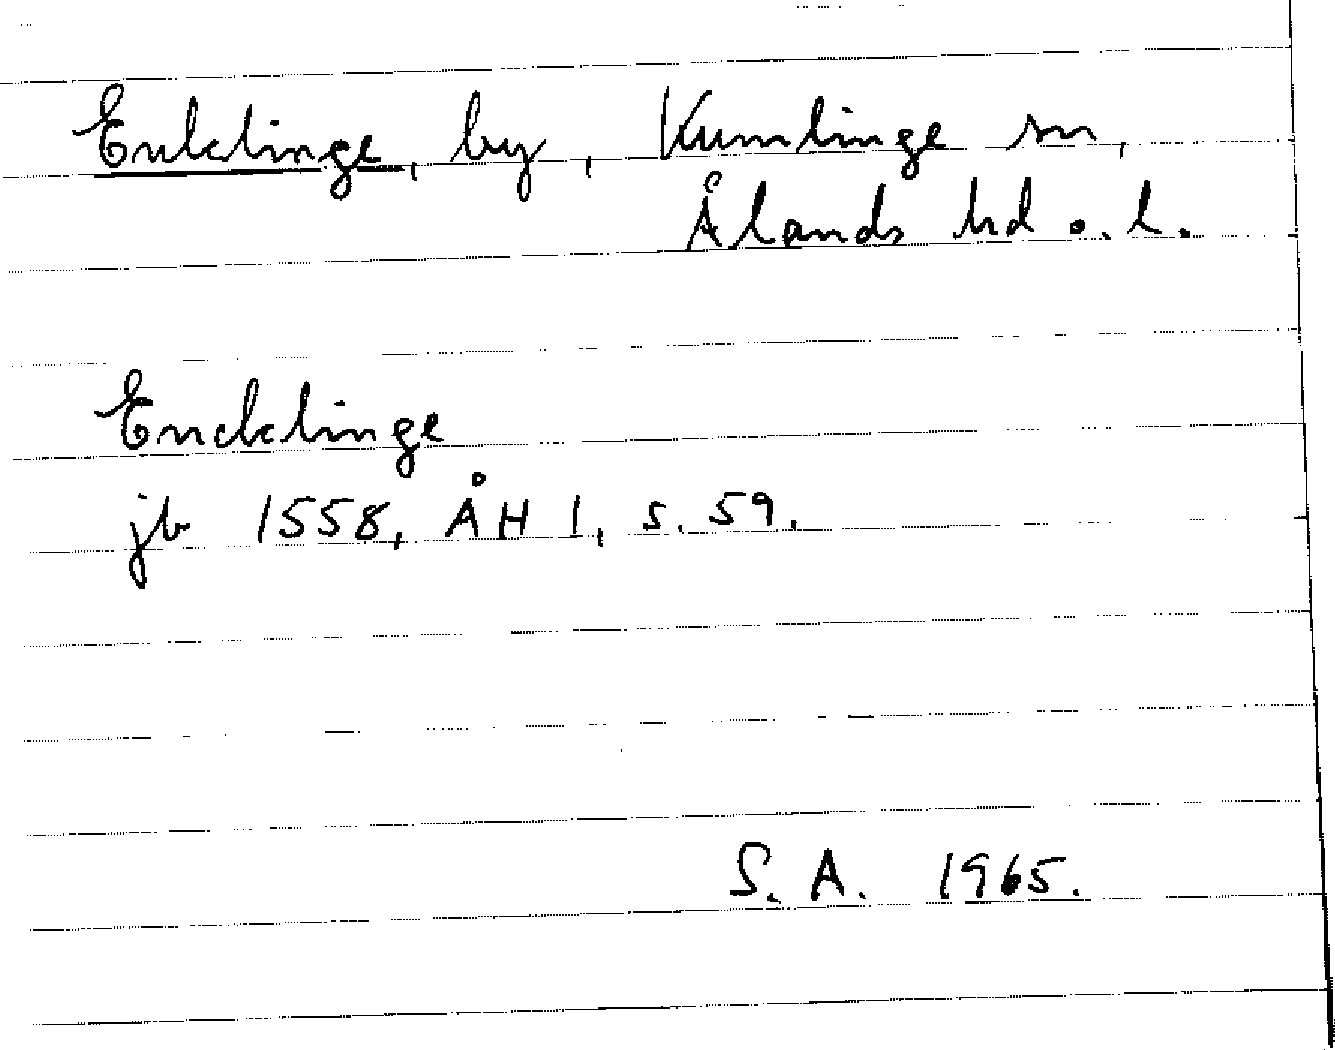 Enklinge, by, Kumlinge sn,
Ålands hd o. l.
Encklinge
jb 1558, ÅH 1, s. 59.
S. A. 1965.